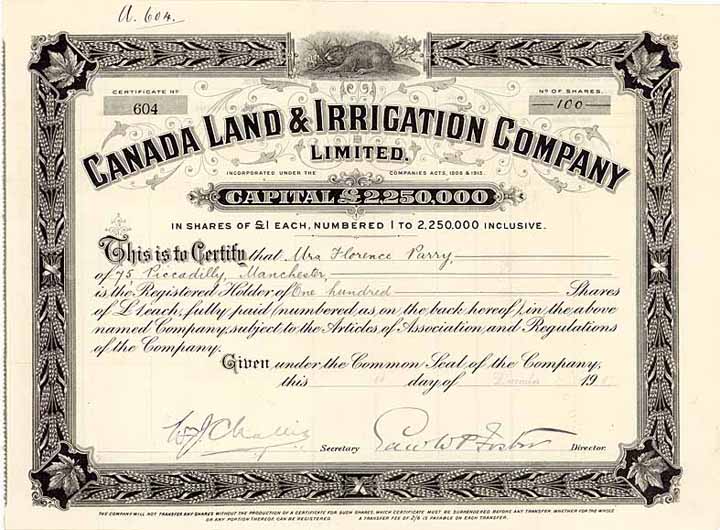 U. 604.
CERTIFICATE Nº
604
Nº OF SHARES.
100
CANADA LAND & IRRIGATION COMPANY
LIMITED.
INCORPORATED UNDER THE COMPANIES ACTS, 1908 & 1913.
CAPITAL £2,250,000
IN SHARES OF £1 EACH, NUMBERED 1 TO 2,250,000 INCLUSIVE.
This is to Certify that Mrs Florence Parry
of 75 Piccadilly, Manchester,
is the Registered Holder of One hundred Shares
of £1 each, fully paid (numbered as on the back hereof), in the above
named Company, subject to the Articles of Association and Regulations
of the Company.
Given under the Common Seal of the Company,
this day of 19
Secretary
Director.
THE COMPANY WILL NOT TRANSFER ANY SHARES WITHOUT THE PRODUCTION OF A CERTIFICATE FOR SUCH SHARES, WHICH CERTIFICATE MUST BE SURRENDERED BEFORE ANY TRANSFER, WHETHER FOR THE WHOLE
OR ANY PORTION THEREOF, CAN BE REGISTERED. A TRANSFER FEE OF 2/6 IS PAYABLE ON EACH TRANSFER.